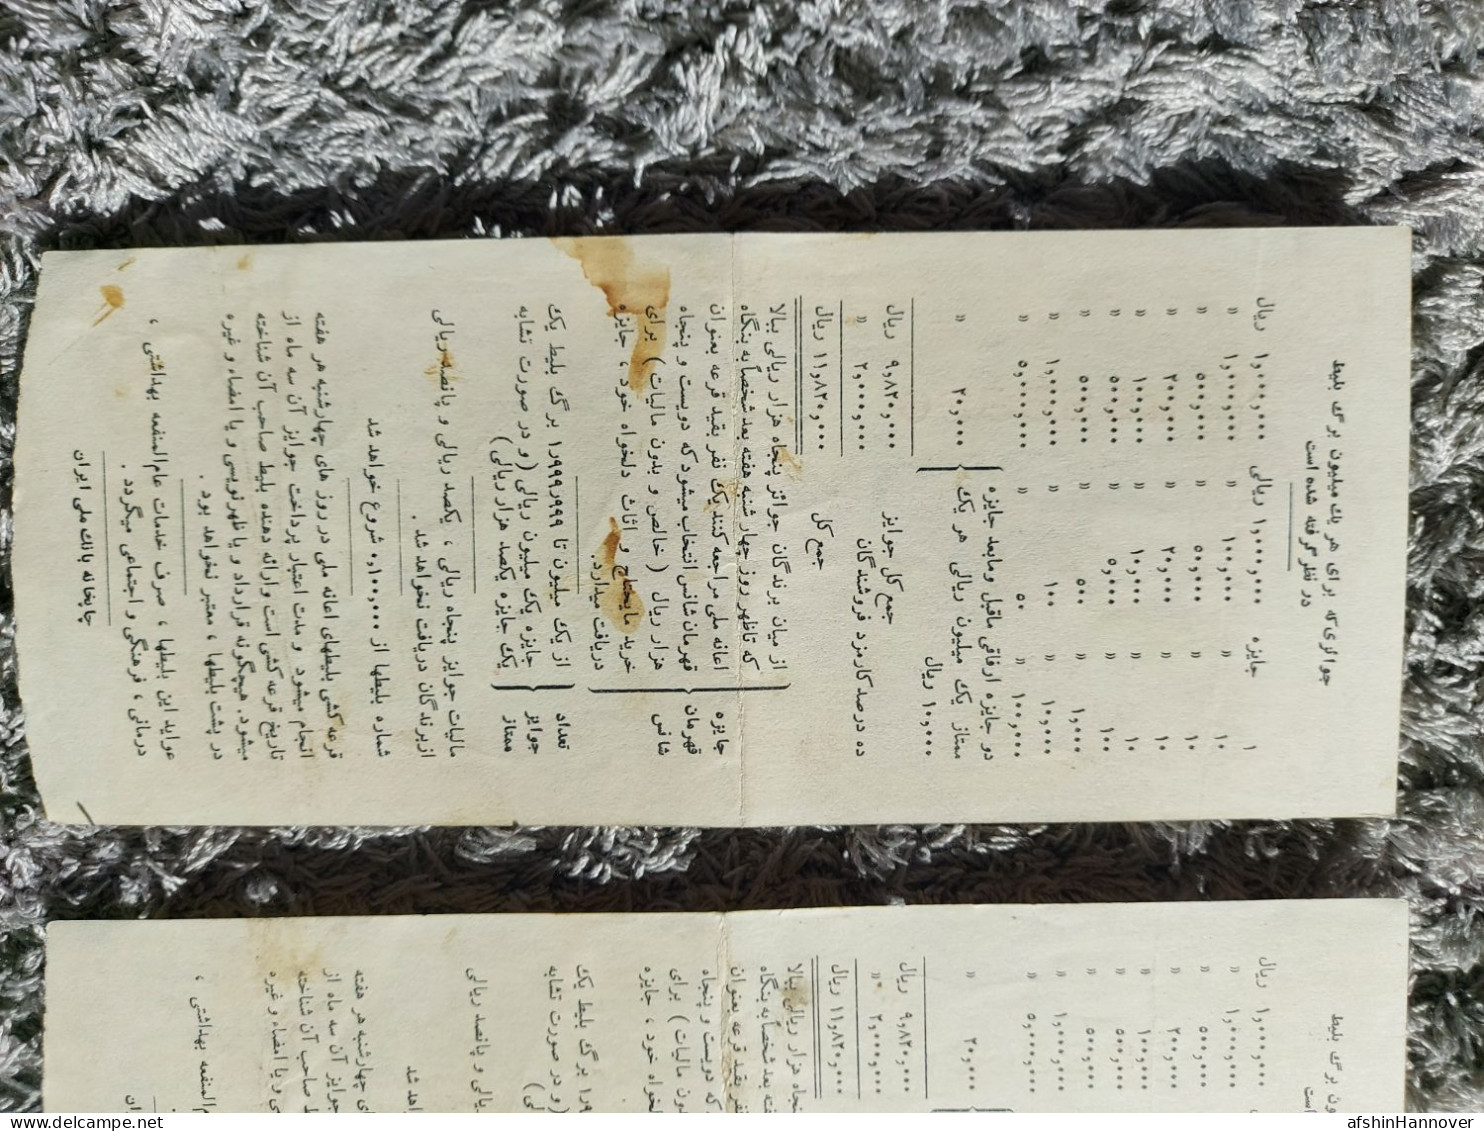 جوائزی که برای هر یک میلیون برگ بلیط
در نظر گرفته شده است
۱ جایزه ۱٫۰۰۰٫۰۰۰ ریالی ۱٫۰۰۰٫۰۰۰ ریال
۱۰ » ۱۰۰٫۰۰۰ » ۱٫۰۰۰٫۰۰۰ »
۱۰ » ۵۰٫۰۰۰ » ۵۰۰٫۰۰۰ »
۱۰ » ۲۰٫۰۰۰ » ۲۰۰٫۰۰۰ »
۱۰ » ۱۰٫۰۰۰ » ۱۰۰٫۰۰۰ »
۱۰۰ » ۵٫۰۰۰ » ۵۰۰٫۰۰۰ »
۱٫۰۰۰ » ۵۰۰ » ۵۰۰٫۰۰۰ »
۱۰٫۰۰۰ » ۱۰۰ » ۱٫۰۰۰٫۰۰۰ »
۱۰۰٫۰۰۰ » ۵۰ » ۵٫۰۰۰٫۰۰۰ »
دو جایزه ارفاقی ماقبل و مابعد جایزه
ممتاز یک میلیون ریالی هر یک
۱۰٫۰۰۰ ریال
۲۰٫۰۰۰ »
جمع کل جوایز ۹٫۸۲۰٫۰۰۰ ریال
ده درصد کارمزد فروشندگان ۲٫۰۰۰٫۰۰۰ »
جمع کل ۱۱٫۸۲۰٫۰۰۰ ریال
جایزه
قهرمان
شانس
از میان برندگان جوائز پنجاه هزار ریالی ببالا
که تا ظهر روز چهارشنبه هفته بعد شخصاً به بنگاه
اعانه ملی مراجعه کنند یک نفر بقید قرعه بعنوان
قهرمان شانس انتخاب میشود که دویست و پنجاه
هزار ریال (خالص و بدون مالیات) برای
خرید مایحتاج و اثاث دلخواه خود، جایزه
دریافت میدارد.
تعداد
جوایز
ممتاز
از یک میلیون تا ۱٫۹۹۹٫۹۹۹ برگ بلیط یک
جایزه یک میلیون ریالی (و در صورت تشابه
یک جایزه یکصد هزار ریالی)
مالیات جوایز پنجاه ریالی، یکصد ریالی و پانصد ریالی
از برندگان دریافت نخواهد شد.
شماره بلیطها از ۵٫۱۰۰٫۰۰۰ شروع خواهد شد
قرعه کشی بلیطهای اعانه ملی در روز های چهارشنبه هر هفته
انجام میشود و مدت اعتبار پرداخت جوایز آن سه ماه از
تاریخ قرعه کشی است و ارائه دهنده بلیط صاحب آن شناخته
میشود. هیچگونه قرارداد و یا ظهرنویسی و یا امضاء و غیره
در پشت بلیطها، معتبر نخواهد بود.
عواید این بلیطها، صرف خدمات عام‌المنفعه بهداشتی،
درمانی، فرهنگی و اجتماعی میگردد.
چاپخانه بانک ملی ایران
ون برگ بلیط
است
۱٫۰۰۰٫۰۰۰ ریال
۱٫۰۰۰٫۰۰۰ »
۵۰۰٫۰۰۰ »
۲۰۰٫۰۰۰ »
۱۰۰٫۰۰۰ »
۵۰۰٫۰۰۰ »
۵۰۰٫۰۰۰ »
۱٫۰۰۰٫۰۰۰ »
۵٫۰۰۰٫۰۰۰ »
۲۰٫۰۰۰ »
۹٫۸۲۰٫۰۰۰ ریال
۲٫۰۰۰٫۰۰۰ »
۱۱٫۸۲۰٫۰۰۰ ریال
نجاه هزار ریالی ببالا
فته بعد شخصاً به بنگاه
نفر بقید قرعه بعنوان
که دویست و پنجاه
ون مالیات) برای
لخواه خود، جایزه
۱٫۹ برگ بلیط یک
(و در صورت تشابه
لی)
یالی و پانصد ریالی
اهد شد
ی چهارشنبه هر هفته
جوایز آن سه ماه از
ط صاحب آن شناخته
ی و یا امضاء و غیره
ام‌المنفعه بهداشتی،
ران
afshinHannover